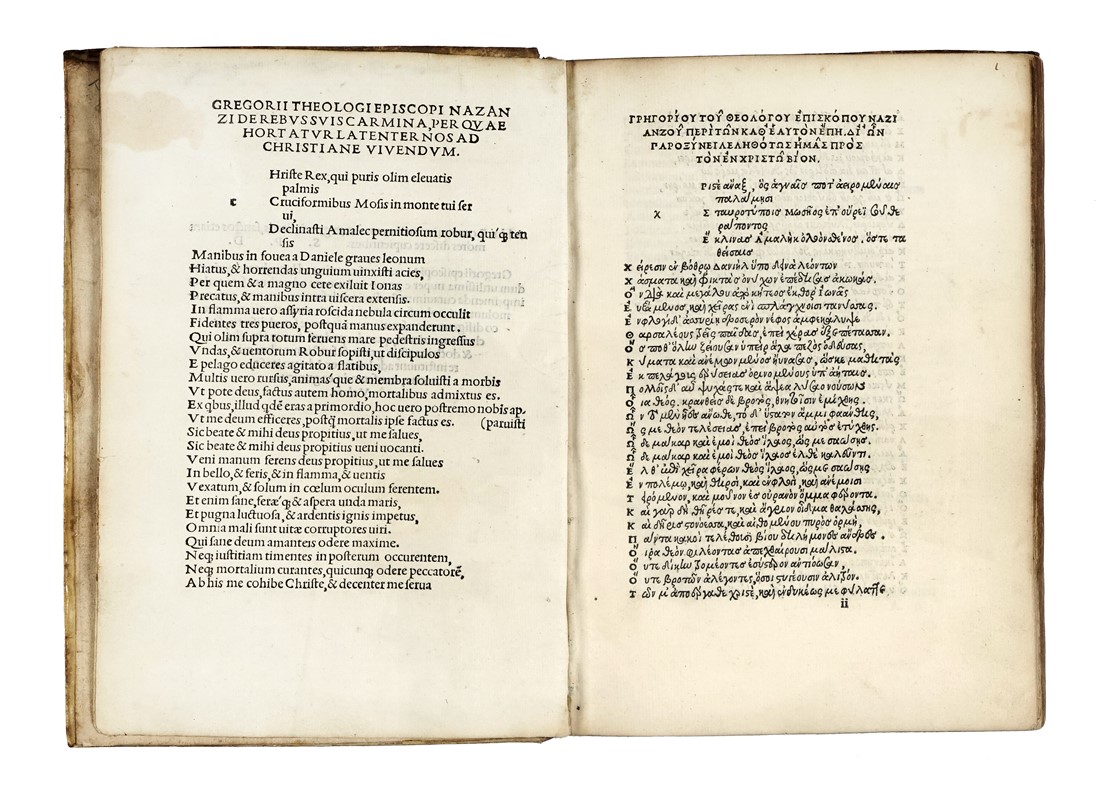 GREGORII THEOLOGI EPISCOPI NAZAN
ZI DE REBVS SVIS CARMINA, PER QVAE
HORTATVR LATENTER NOS AD
CHRISTIANE VIVENDVM.
Hriste Rex, qui puris olim eleuatis
palmis
c Cruciformibus Mosis in monte tui ser
ui,
Declinasti Amalec pernitiosum robur, qui'qꝫ ten
sis
Manibus in fouea a Daniele graues leonum
Hiatus, & horrendas unguium uinxisti acies,
Per quem & a magno cete exiluit Ionas
Precatus, & manibus intra uiscera extensis.
In flamma uero assyria roscida nebula circum occulit
Fidentes tres pueros, postquā manus expanderunt.
Qui olim supra totum feruens mare pedestris ingressus
Vndas, & uentorum Robur sopisti, ut discipulos
E pelago educeres agitato a flatibus,
Multis uero rursus, animas'que & membra soluisti a morbis
Vt pote deus, factus autem homo, mortalibus admixtus es.
Ex qbus, illud qdē eras a primordio, hoc uero postremo nobis ap,
Vt me deum efficeres, postq̄ mortalis ipse factus es. (paruisti
Sic beate & mihi deus propitius, ut me salues,
Sic beate & mihi deus propitius ueni uocanti.
Veni manum ferens deus propitius, ut me salues
In bello, & feris, & in flamma, & uentis
Vexatum, & solum in cœlum oculum ferentem.
Et enim sane, feræ'qꝫ & aspera unda maris,
Et pugna luctuosa, & ardentis ignis impetus,
Omnia mali sunt uitæ corruptores uiri.
Qui sane deum amanteis odere maxime.
Neqꝫ iustitiam timentes in posterum occurentem,
Neqꝫ mortalium curantes, quicunqꝫ odere peccatorē,
Ab his me cohibe Christe, & decenter me serua
ΓΡΗΓΟΡΙΟΥ ΤΟΥ ΘΕΟΛΟΓΟΥ ἘΠΙΣΚΌΠΟΥ ΝΑΖΙ
ΑΝΖΟΥ͂ ΠΕΡΙ ΤΩ͂Ν ΚΑΘ' ἙΑΥΤῸΝ ἘΠΗ͂. ΔΙ' ὩΝ
ΠΑΡΟΞΎΝΕΙ ΛΕΛΗΘΌΤΩΣ ἩΜΑ͂Σ ΠΡῸΣ
ΤῸΝ ἘΝ ΧΡΙΣΤΩ͂ ΒΊΟΝ.
ριςὲ ἄναξ, ὃς ἁγναῖς ποτ' ἀειρομέναις
παλάμῃσι
χ Σταυροτύποις μωσῆος ἐπ' οὔρεϊ σοῦ θε
ράποντος
Ἔκλινας ἀμαλὴκ ὀλοὸν σθένος. ὅς τε τα
θείσαις
Χείρεσιν ἐν βόθρῳ δανιὴλ ὕπο δεινὰ λεόντων
Χάσματα καὶ φρικτὰς ὀνύχων ἐπέδησας ἀκωκάς.
Ὅν διὰ καὶ μεγάλου ἀπὸ κήτεος ἔκθορ' ἰωνᾶς
Εὐξάμενος, καὶ χεῖρας ἐνὶ σπλάγχνοισι τανύσας.
Ἐν φλογὶ δ' ἀσυρίῃ δροσερὸν νέφος ἀμφεκάλυψε
Θαρσαλέους τρεῖς παῖδας, ἐπεὶ χέρας ἐξεπέτασαν.
Ὅς ποθ' ὅλην ζείουσαν ὑπεὶρ ἅλα πεζὸς ὁδεύσας,
Κύματα καὶ ἀνέμων μένος ηὔνασας, ὥς κε μαθητὰς
Ἐκ πελάγους ἐρύσειας ὀρινομένους ὑπ' ἀήταις.
Πολλοῖς δ' αὖ ψυχάς τε καὶ ἅψεα λύσαο νούσων
Οἷα θεός. κρανθεὶς δὲ βροτὸς, θνητοῖσιν ἐμίχθης.
Ὧν τὸ μὲν ἦσθα ἄνωθε, τὸ δ' ὕςατον ἄμμι φαάνθης,
Ὥς με θεὸν τελέσειας, ἐπεὶ βροτὸς αὐτὸς ἐτύχθης.
Ὧδε μάκαρ καὶ ἐμοὶ θεὸς ἵλαος, ὥς με σαώσῃς.
Ὧδε μάκαρ καὶ ἐμοὶ θεὸς ἵλαος ἐλθὲ καλεῦντι.
Ἔλθ' ἐπὶ χεῖρα φέρων θεὸς ἵλαος, ὥς με σαώσῃς
Ἐν πολέμῳ, καὶ θηρσὶ, καὶ ἐν φλογὶ, καὶ ἀνέμοισι
Τειρόμενον, καὶ μοῦνον ἐς οὐρανὸν ὄμμα φέροντα.
Καὶ γὰρ δὴ θῆρές τε, καὶ ἄγριον οἶδμα θαλάσσης,
Καὶ δῆρις στονόεσσα, καὶ αἰθομένου πυρὸς ὁρμὴ,
Πάντα κακοὶ τελέθουσι βίου δηλήμονες ἄνδρες.
Οἵ ῥα θεὸν φιλέοντας ἀπεχθαίρουσι μάλιςα.
Οὔτε δίκην τρομέοντες ἐς ὕςερον ἀντιόωσαν,
Οὔτε βροτῶν ἀλέγοντες, ὅσοι ςυγέουσιν ἀλιτρόν.
Τῶν μ' ἀποέργαθε χριςὲ, καὶ ἐνδυκέως με φύλασσε
ii